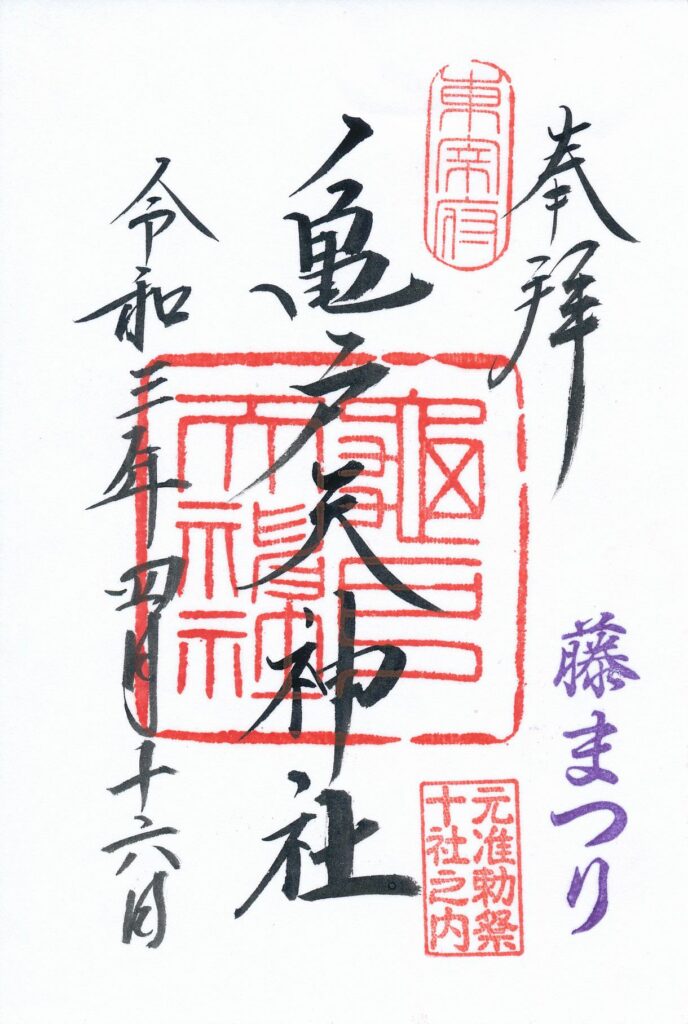 奉拝
藤まつり
東宰府
元准勅祭
十社之内
亀戸天神社
龜戸
天神社
令和三年四月十六日